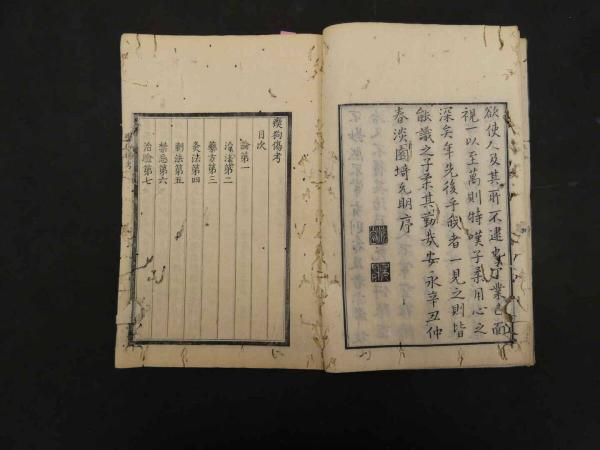 欲使人及其所不逮也業已面
視一以至萬則特嘆子柔用心之
深矣年先後乎我者一見之則皆
能識之子柔其勤哉安永辛丑仲
春淡園埼允明序
瘈狗傷考
目次
論第一
治法第二
藥方第三
灸法第四
刺法第五
禁忌第六
治驗第七